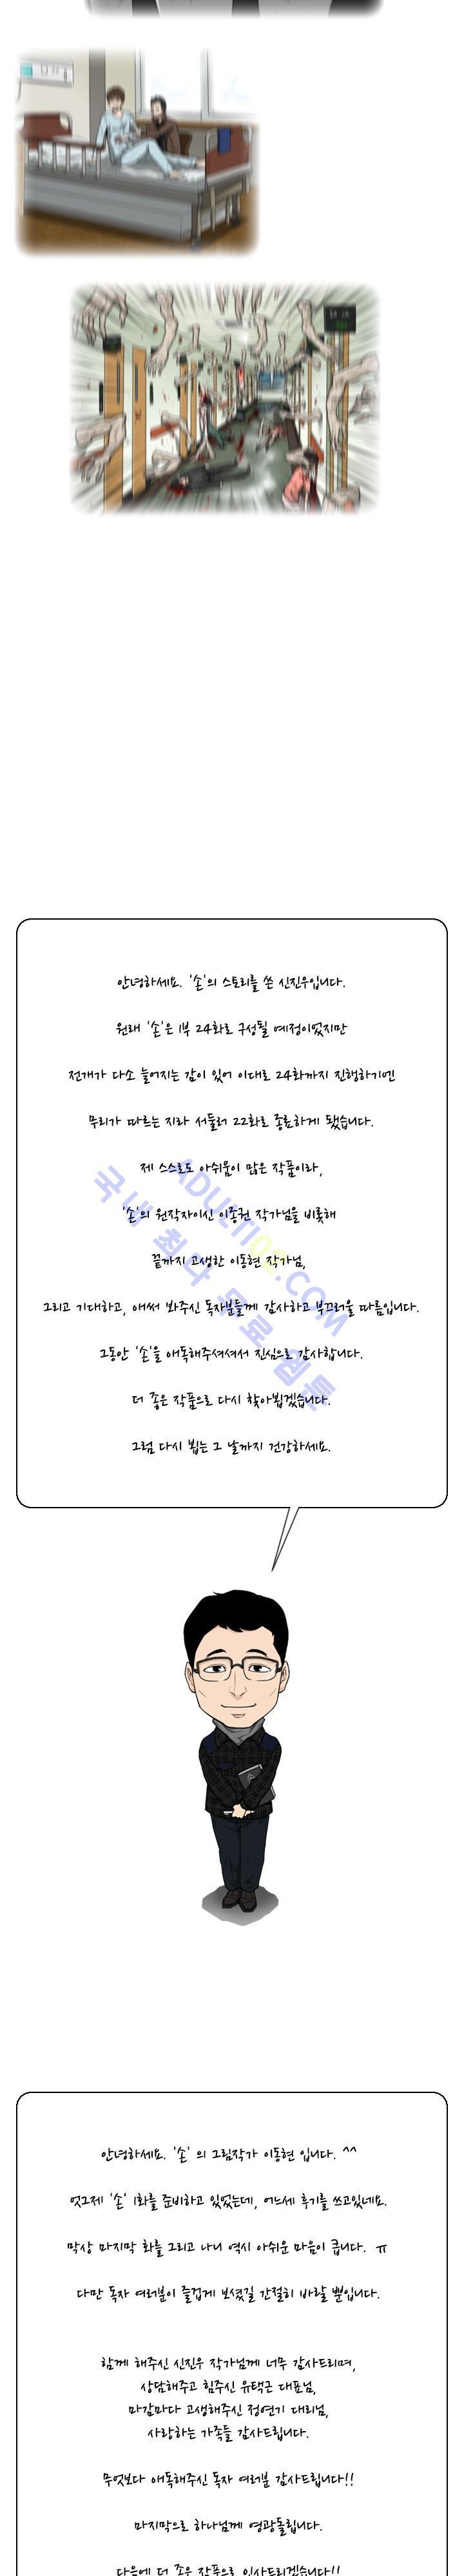 안녕하세요. '손'의 스토리를 쓴 신진우입니다.
원래 '손'은 1부 24화로 구성될 예정이었지만
전개가 다소 늘어지는 감이 있어 이대로 24화까지 진행하기엔
무리가 따르는 지라 서둘러 22화로 종료하게 됐습니다.
제 스스로도 아쉬움이 많은 작품이라,
'손'의 원작자이신 이종권 작가님을 비롯해
끝까지 고생한 이동현 작가님,
그리고 기대하고, 애써 봐주신 독자분들께 감사하고 부끄러울 따름입니다.
그동안 '손'을 애독해주셔셔서 진심으로 감사합니다.
더 좋은 작품으로 다시 찾아뵙겠습니다.
그럼 다시 뵙는 그 날까지 건강하세요.
ADULTI02.COM
국내 최다 무료 웹툰
안녕하세요. '손' 의 그림작가 이동현 입니다. ^^
엇그제 '손' 1화를 준비하고 있었는데, 어느세 후기를 쓰고있네요.
막상 마지막 화를 그리고 나니 역시 아쉬운 마음이 큽니다. ㅠ
다만 독자 여러분이 즐겁게 보셨길 간절히 바랄 뿐입니다.
함께 해주신 신진우 작가님께 너무 감사드리며,
상담해주고 힘주신 유택근 대표님,
마감마다 고생해주신 정연기 대리님,
사랑하는 가족들 감사드립니다.
무엇보다 애독해주신 독자 여러분 감사드립니다!!
마지막으로 하나님께 영광돌립니다.
다음에 더 좋은 작품으로 인사드리겠습니다!!